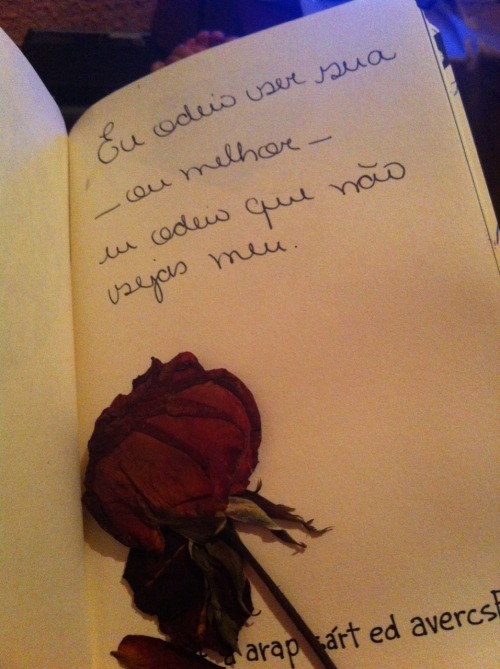 Eu odeio ser sua
— ou melhor —
eu odeio que não
sejas meu.
a arap sárt ed avercsE